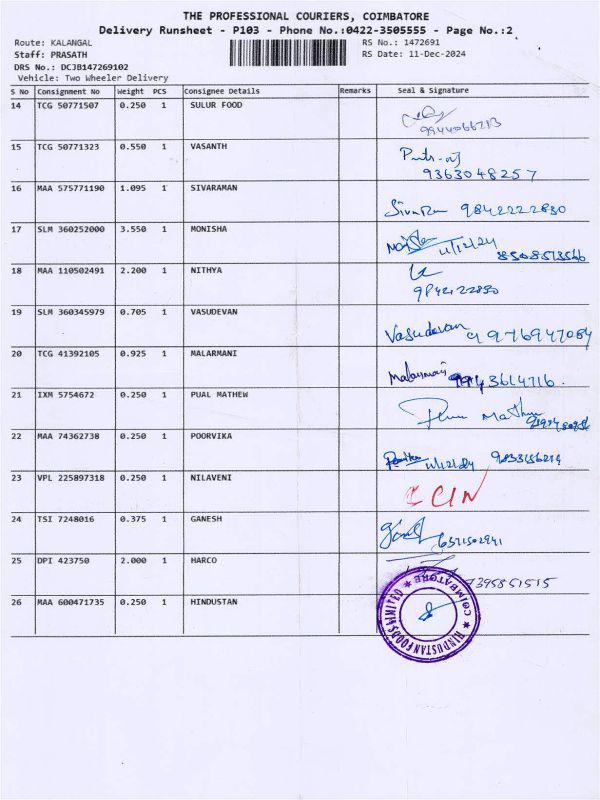 THE PROFESSIONAL COURIERS, COIMBATORE
Delivery Runsheet - P103 - Phone No.:0422-3505555 - Page No.:2
Route: KALANGAL RS No.: 1472691
Staff: PRASATH RS Date: 11-Dec-2024
DRS No.: DCJB147269102
Vehicle: Two Wheeler Delivery
S No Consignment No Weight PCS Consignee Details Remarks Seal & Signature
14 TCG 50771507 0.250 1 SULUR FOOD
15 TCG 50771323 0.550 1 VASANTH
9363048257
16 MAA 575771190 1.095 1 SIVARAMAN
9842222830
17 SLM 360252000 3.550 1 MONISHA
11/12/24
18 MAA 110502491 2.200 1 NITHYA
19 SLM 360345979 0.705 1 VASUDEVAN
Vasudevan
20 TCG 41392105 0.925 1 MALARMANI
Malarmani
21 IXM 5754672 0.250 1 PUAL MATHEW
22 MAA 74362738 0.250 1 POORVIKA
11/12/24
23 VPL 225897318 0.250 1 NILAVENI
24 TSI 7248016 0.375 1 GANESH
25 DPI 423750 2.000 1 HARCO
26 MAA 600471735 0.250 1 HINDUSTAN
HINDUSTAN FOODS LIMITED ★ COIMBATORE ★